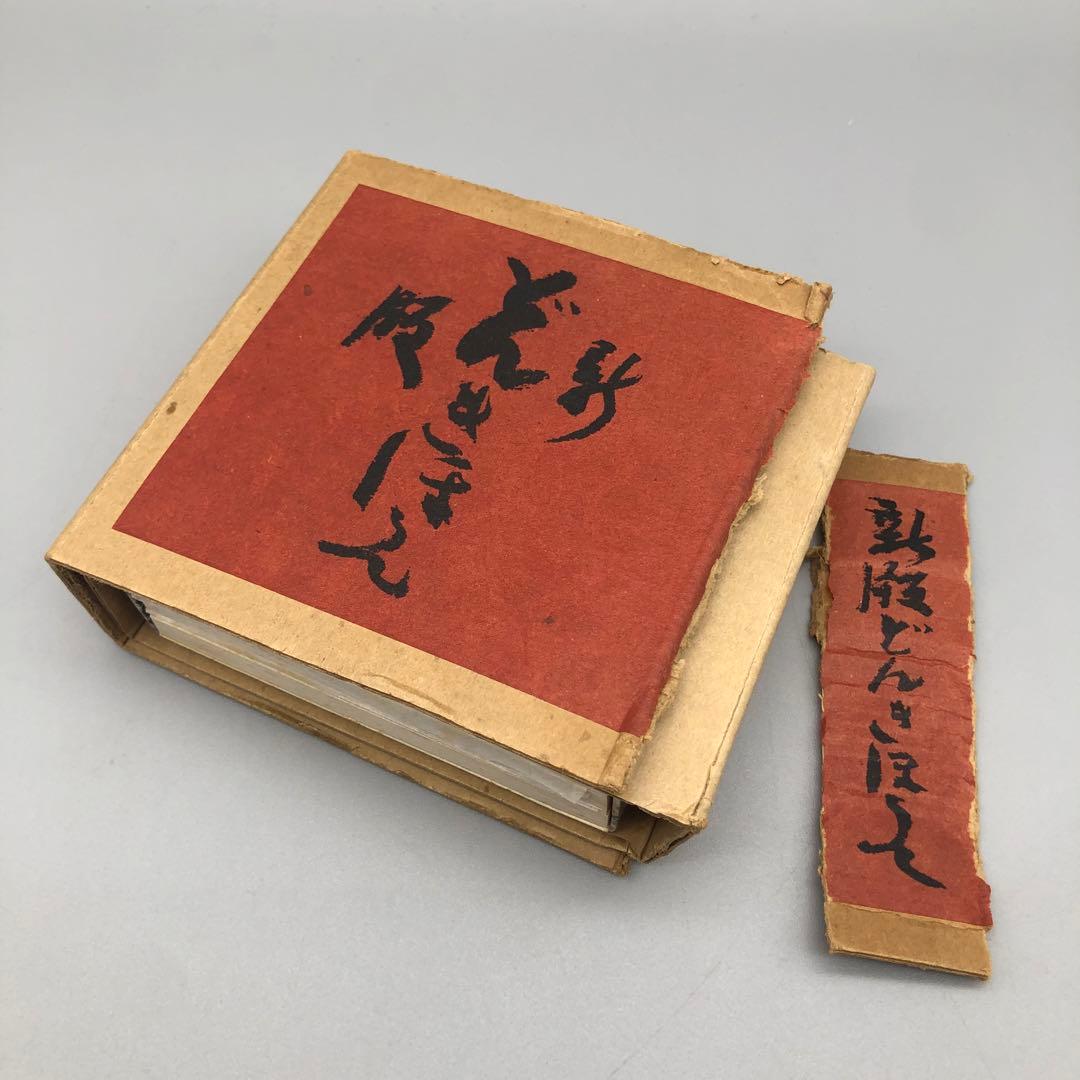 新
どんきほうて
版
新版どんきほうて